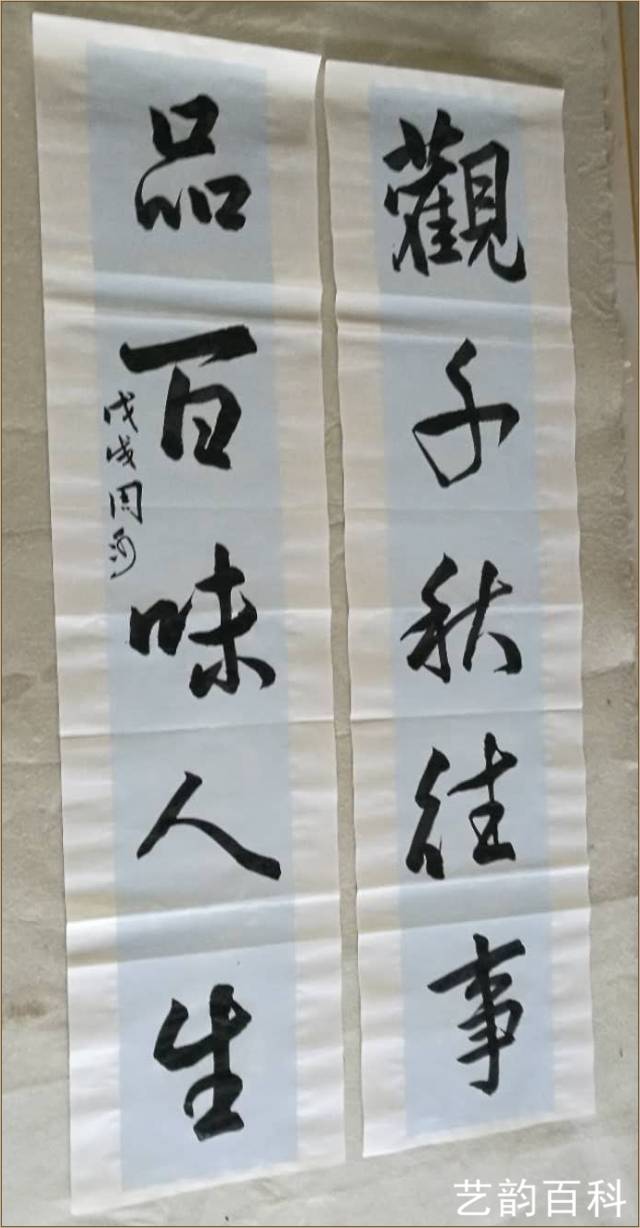 觀千秋往事
品百味人生
戊戌周河
艺韵百科